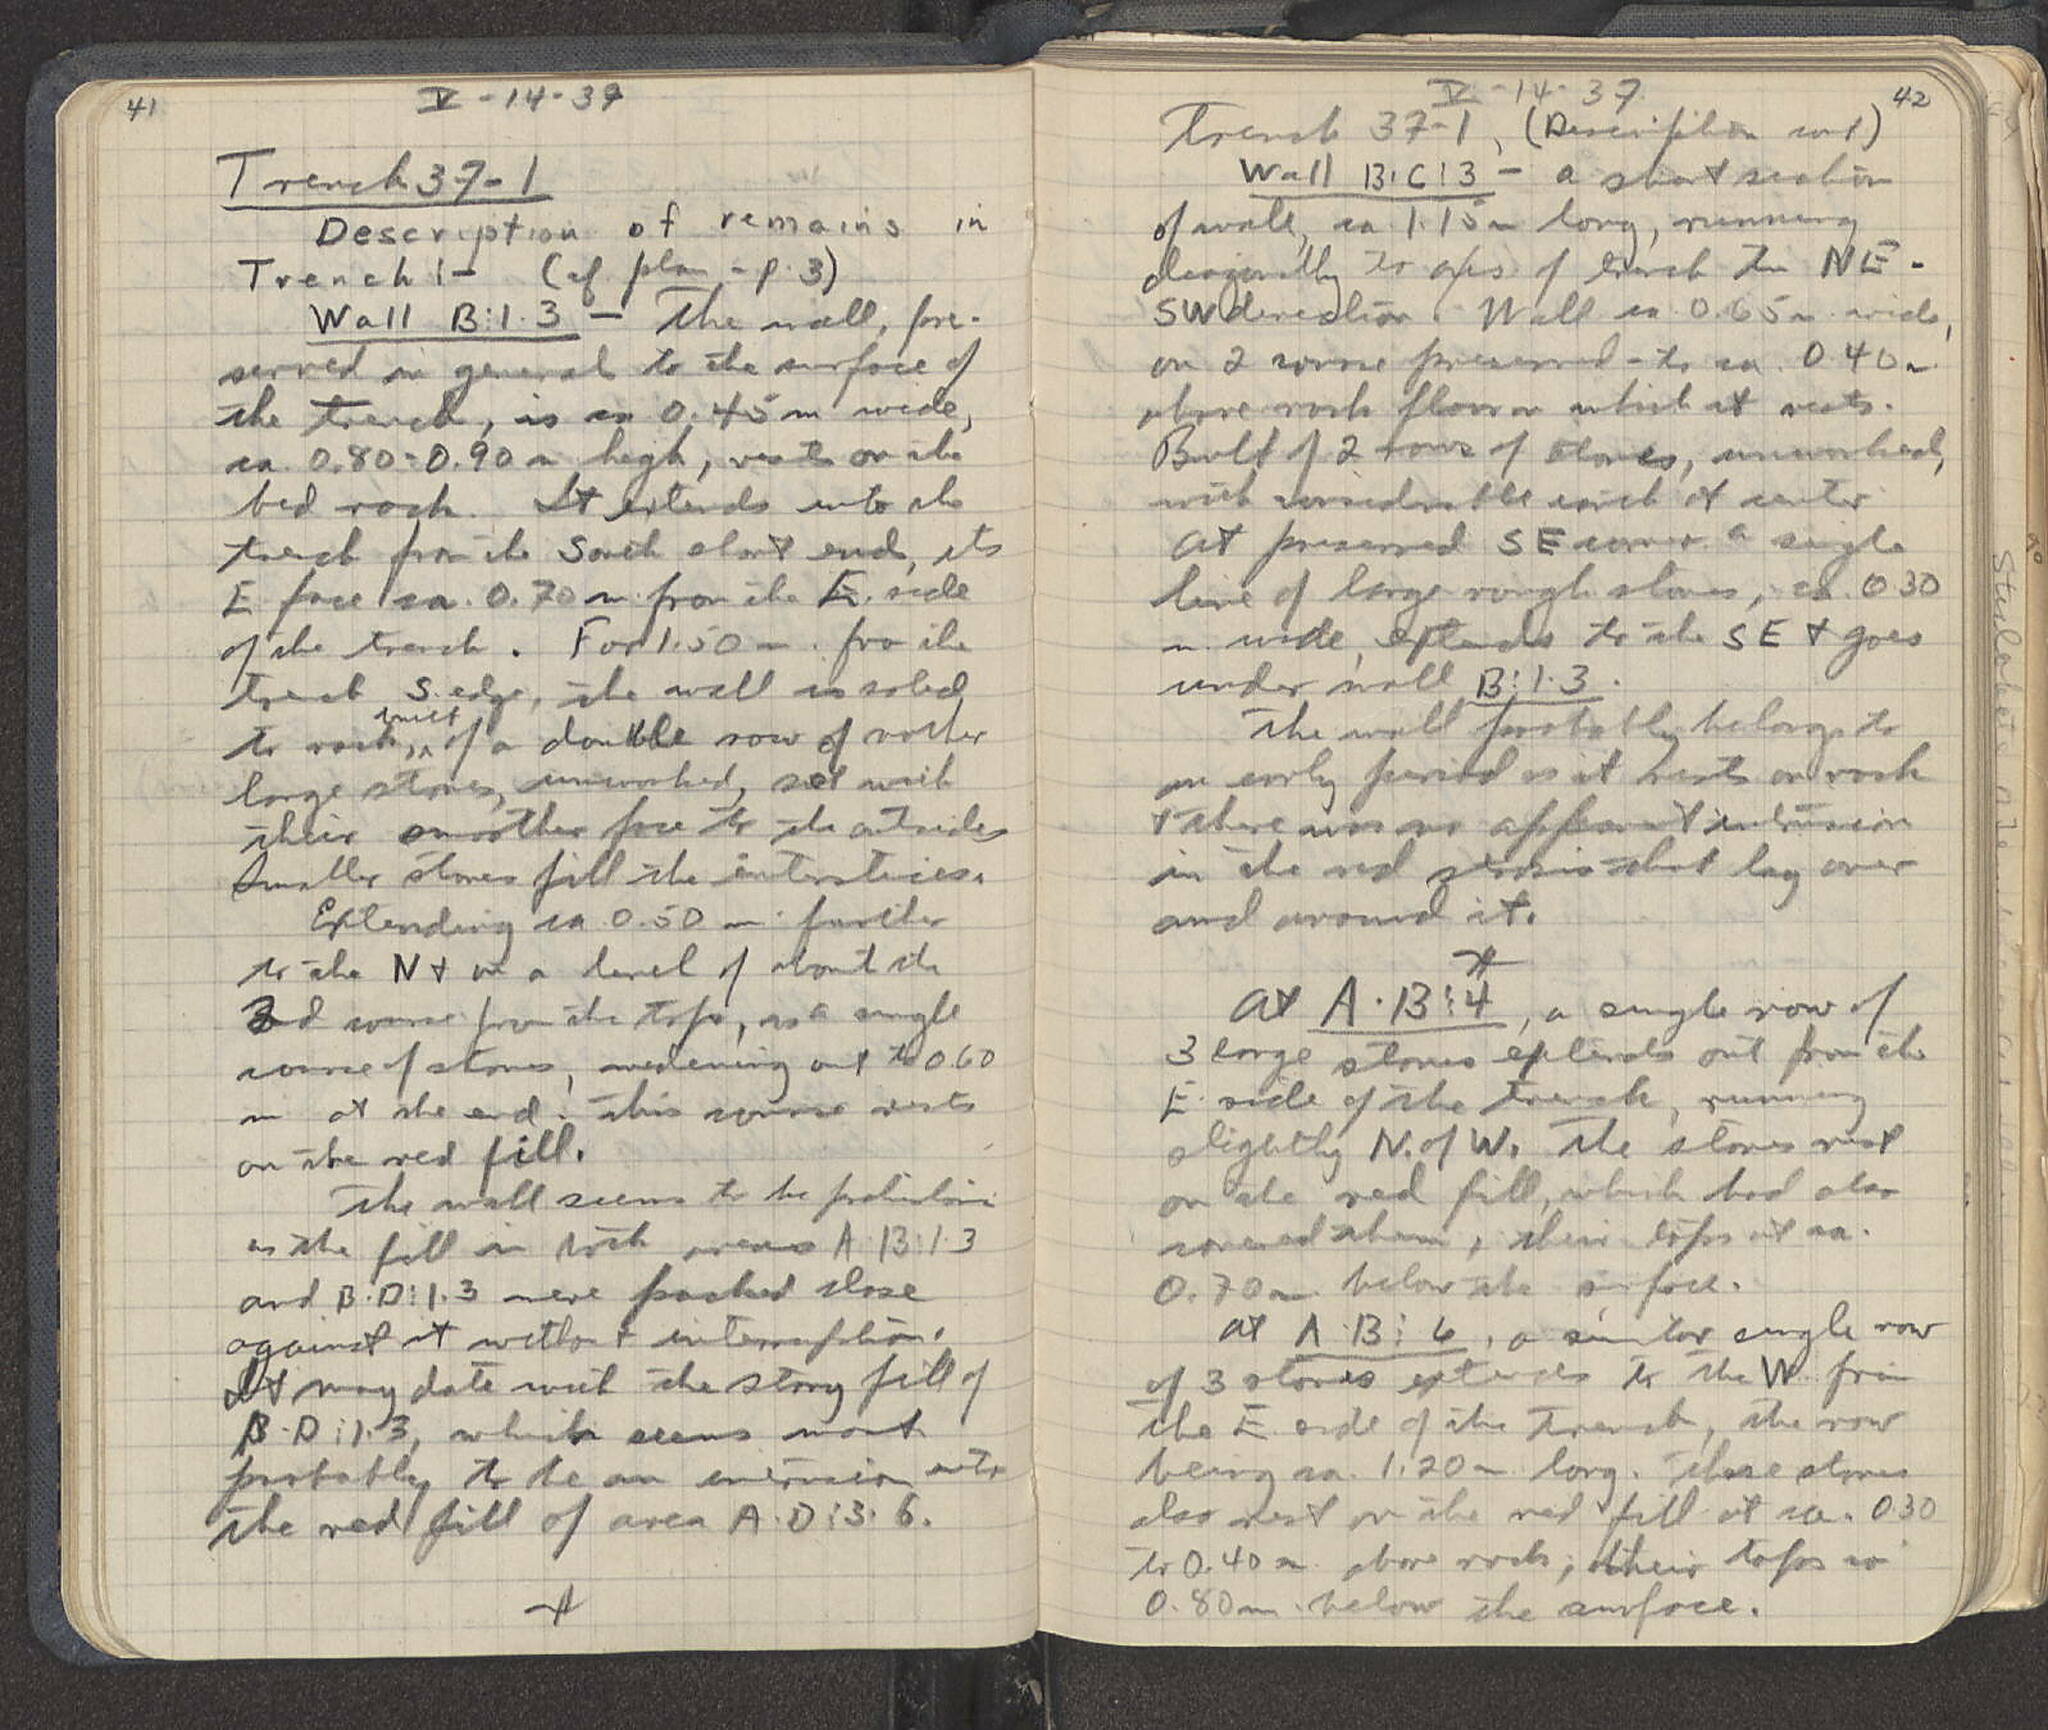 41
V-14-37
Trench 37-1
Description of remains in
Trench:- (cf plan - p. 3)
Wall B:1.3 - The wall, pre-
served in general to the surface of
the trench, is ca 0.45 m wide,
ca. 0.80-0.90 m high, rests on the
bed rock. It extends into the
trench from the South short end, its
E face ca. 0.70 m from the E. side
of the trench. For 1.50 m. fro the
trench S. edge, the wall is solid
to rock, built of a double row of rather
large stones, unworked, set with
their smoother face to the outside.
Smaller stones fill the interstices.
Extending ca 0.50 m. further
to the N & on a level of about the
3rd course from the top, is a single
course of stones, widening out to 0.60
m at the end. This course rests
on the red fill.
The wall seems to be
as the fill in both areas A.B:1.3
and B.D:1.3 were packed close
against it without interruption.
It may date with the stony fill of
B.D:1.3, which seems most
probably to be an intrusion into
the red fill of area A.D:3.6.
42
V-14-37
Trench 37-1, (Description cont)
Wall B.C:3 - a short section
of wall, ca 1.15 m long, running
diagonally to axis of trench in NE-
SW direction. Wall ca 0.65 m. wide,
on 2 course preserved - to ca. 0.40 m
above rock floor on which it rests.
Built of 2 rows of stones, unworked,
with considerable earth at center
At preserved SE corner a single
line of large rough stones, ca. 0.30
m. wide, extends to the SE & goes
under wall B:1.3.
The wall probably belongs to
an early period as it rests on rock
& there was no apparent intrusion
in the red stratum that lay over
and around it.
At A.B:4, a single row of
3 large stones extends out from the
E. side of the trench, running
slightly N. of W. The stones rest
on the red fill, which had also
covered them, their tops at ca.
0.70 m. below the surface.
At A.B:6, a similar single row
of 3 stones extends to the W. from
the E. side of the trench, the row
being ca. 1.20 m long. These stones
also rest on the red fill at ca. 0.30
to 0.40 m. above rock, their tops ca
0.80 m. below the surface.